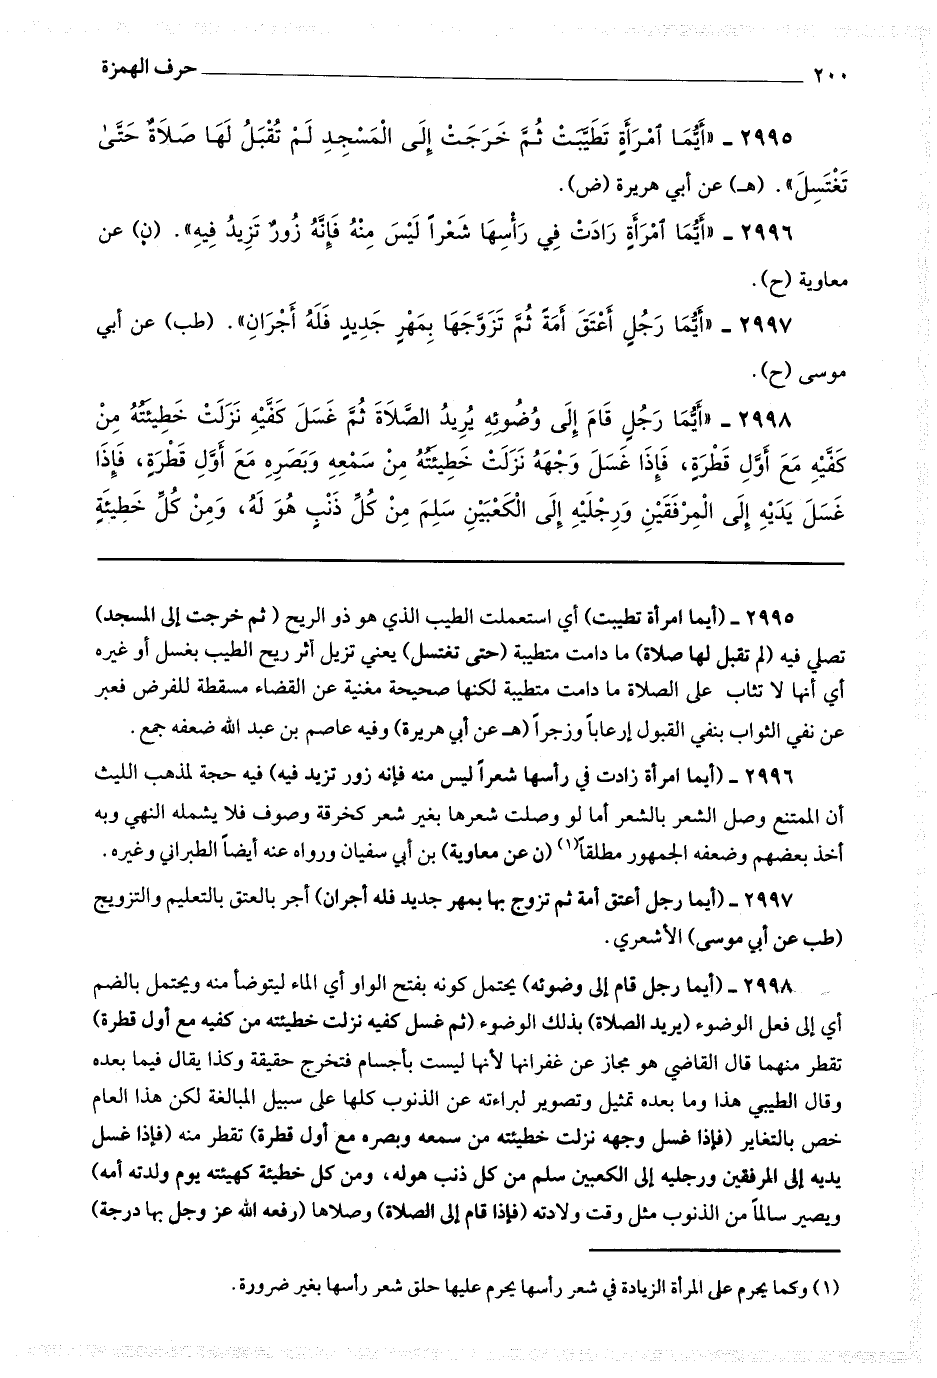 ٢٠٠ ـــــ حرف الهمزة
٢٩٩٥ ـ «أَيُّمَا ٱمْرَأَةٍ تَطَيَّبَتْ ثُمَّ خَرَجَتْ إِلَى الْمَسْجِدِ لَمْ تُقْبَلُ لَهَا صَلَاةٌ حَتَّىٰ
تَغْتَسِلَ». (هـ) عن أبي هريرة (ض).
٢٩٩٦ ـ «أَيُّمَا ٱمْرَأَةٍ زَادَتْ فِي رَأْسِهَا شَعْراً لَيْسَ مِنْهُ فَإِنَّهُ زُورٌ تَزِيدُ فِيهِ». (ن) عن
معاوية (ح).
٢٩٩٧ ـ «أَيُّمَا رَجُلٍ أَعْتَقَ أَمَةً ثُمَّ تَزَوَّجَهَا بِمَهْرٍ جَدِيدٍ فَلَهُ أَجْرَانِ». (طب) عن أبي
موسى (ح).
٢٩٩٨ ـ «أَيُّمَا رَجُلٍ قَامَ إِلَى وُضُوئِهِ يُرِيدُ الصَّلَاةَ ثُمَّ غَسَلَ كَفَّيْهِ نَزَلَتْ خَطِيئَتُهُ مِنْ
كَفَّيْهِ مَعَ أَوَّلِ قَطْرَةٍ، فَإِذَا غَسَلَ وَجْهَهُ نَزَلَتْ خَطِيئَتُهُ مِنْ سَمْعِهِ وَبَصَرِهِ مَعَ أَوَّلِ قَطْرَةٍ، فَإِذَا
غَسَلَ يَدَيْهِ إِلَى الْمِرْفَقَيْنِ وَرِجْلَيْهِ إِلَى الْكَعْبَيْنِ سَلِمَ مِنْ كُلِّ ذَنْبٍ هُوَ لَهُ، وَمِنْ كُلِّ خَطِيئَةٍ
٢٩٩٥ ـ (أيما امرأة تطيبت) أي استعملت الطيب الذي هو ذو الريح ( ثم خرجت إلى المسجد)
تصلي فيه (لم تقبل لها صلاة) ما دامت متطيبة (حتى تغتسل) يعني تزيل أثر ريح الطيب بغسل أو غيره
أي أنها لا تثاب على الصلاة ما دامت متطيبة لكنها صحيحة مغنية عن القضاء مسقطة للفرض فعبر
عن نفي الثواب بنفي القبول إرعاباً وزجراً (هـ عن أبي هريرة) وفيه عاصم بن عبد الله ضعفه جمع.
٢٩٩٦ ـ (أيما امرأة زادت في رأسها شعراً ليس منه فإنه زور تزيد فيه) فيه حجة لمذهب الليث
أن الممتنع وصل الشعر بالشعر أما لو وصلت شعرها بغير شعر كخرقة وصوف فلا يشمله النهي وبه
أخذ بعضهم وضعفه الجمهور مطلقاً(١) (ن عن معاوية) بن أبي سفيان ورواه عنه أيضاً الطبراني وغيره.
٢٩٩٧ ـ (أيما رجل أعتق أمة ثم تزوج بها بمهر جديد فله أجران) أجر بالعتق بالتعليم والتزويج
(طب عن أبي موسى) الأشعري.
٢٩٩٨ ـ (أيما رجل قام إلى وضوئه) يحتمل كونه بفتح الواو أي الماء ليتوضأ منه ويحتمل بالضم
أي إلى فعل الوضوء (يريد الصلاة) بذلك الوضوء (ثم غسل كفيه نزلت خطيئته من كفيه مع أول قطرة)
تقطر منهما قال القاضي هو مجاز عن غفرانها لأنها ليست بأجسام فتخرج حقيقة وكذا يقال فيما بعده
وقال الطيبي هذا وما بعده تمثيل وتصوير لبراءته عن الذنوب كلها على سبيل المبالغة لكن هذا العام
خص بالتغاير (فإذا غسل وجهه نزلت خطيئته من سمعه وبصره مع أول قطرة) تقطر منه (فإذا غسل
يديه إلى المرفقين ورجليه إلى الكعبين سلم من كل ذنب هوله، ومن كل خطيئة كهيئته يوم ولدته أمه)
ويصير سالماً من الذنوب مثل وقت ولادته (فإذا قام إلى الصلاة) وصلاها (رفعه الله عز وجل بها درجة)
(١) وكما يحرم على المرأة الزيادة في شعر رأسها يحرم عليها حلق شعر رأسها بغير ضرورة.